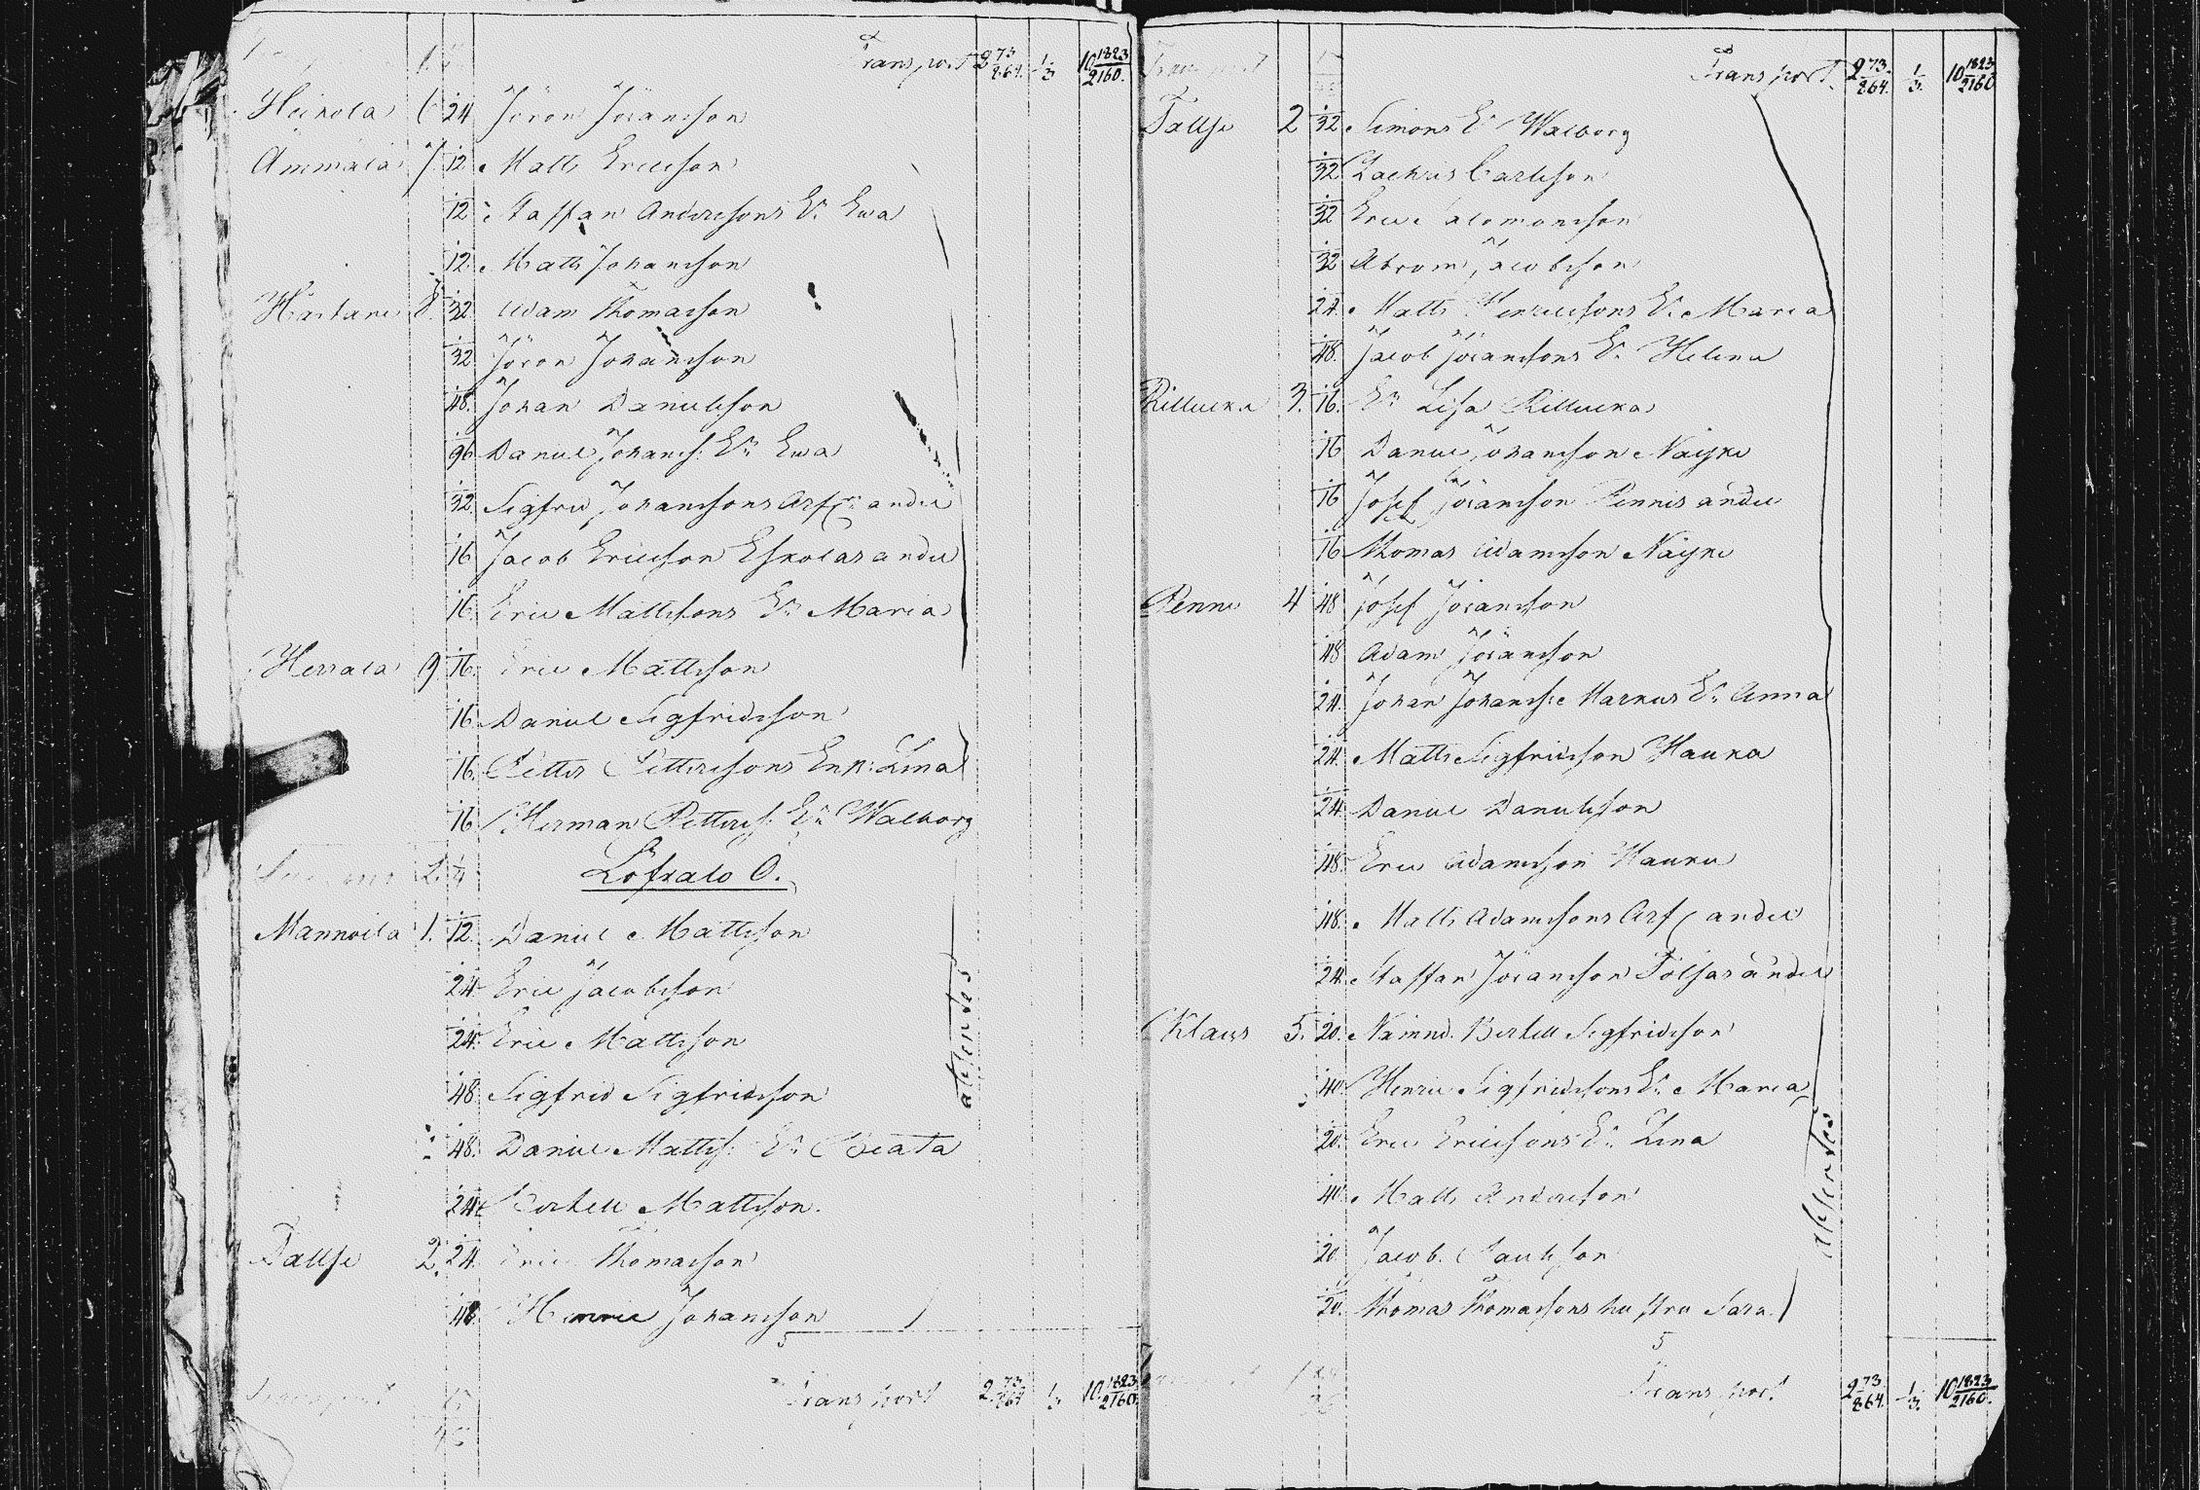 Transport 2 73/864. 1/3 10 1823/2160.
Heikola 6 1/24 Jöran Jöransson
Ammälä 7. 1/12 Matts Ericsson
1/12 Staffan Anderssons E: Ewa
1/12 Matts Johansson
Härtane 8. 1/32 Adam Thomasson
1/32 Jöran Johansson
1/48. Johan Danielsson
1/96 Daniel Johanss: En Ewa
1/32 Sigfrid Johanssons Arf: andel
1/16 Jacob Ericsson Eskolas andel
1/16 Eric Mattssons En Maria
Herrala 9 1/16. Eric Mattsson
1/16 Daniel Sigfridsson
1/16. Petter Petterssons Enk: Lena
1/16 Herman Petterss: En Walborg
Löfsalo O.
Mannoila 1. 1/12. Daniel Mattsson
1/24 Eric Jacobsson
1/24 Eric Mattsson
1/48 Sigfrid Sigfridsson
1/48. Daniel Mattss: En Beata
1/24 Bertell Mattsson.
Tallse 2. 1/24. Eric Thomasson
1/48 Henric Johansson
absentes
Transport 2 73/864 1/3 10 1823/2160.
Transport 2 73/864. 1/3. 10 1823/2160
Tallse 2 1/32 Simons En Walborg
1/32 Zachris Carlsson
1/32 Eric Salomonsson
1/32 Abram Jacobsson
1/24 Matts Henricssons En Maria
1/48. Jacob Jöranssons En Helena
Rillucka 3. 1/16. En Lisa Rillucka
1/16 Daniel Johansson Näyke
1/16 Josef Jöransson Pennis andel
1/16 Thomas Adamsson Näyke
Penni 4 1/48 Josef Jöransson
1/48 Adam Jöransson
1/24. Johan Johanss: Markus En Anna
1/24. Matts Sigfridsson Hauka
1/24 Daniel Danielsson
1/48 Eric Adamsson Hauka
1/48. Matts Adamssons Arf: andel
1/24. Staffan Jöransson Tolsas andel
Klaus 5. 1/20. Nämnd. Bertell Sigfridsson
1/40 Henric Sigfridssons En Maria
1/20. Eric Ericssons En Lena
1/40 Matts Andersson
1/20 Jacob Paulsson
1/20. Thomas Thomassons hustru Sara.
absentes
Transport 2 73/864. 1/3. 10 1823/2160.